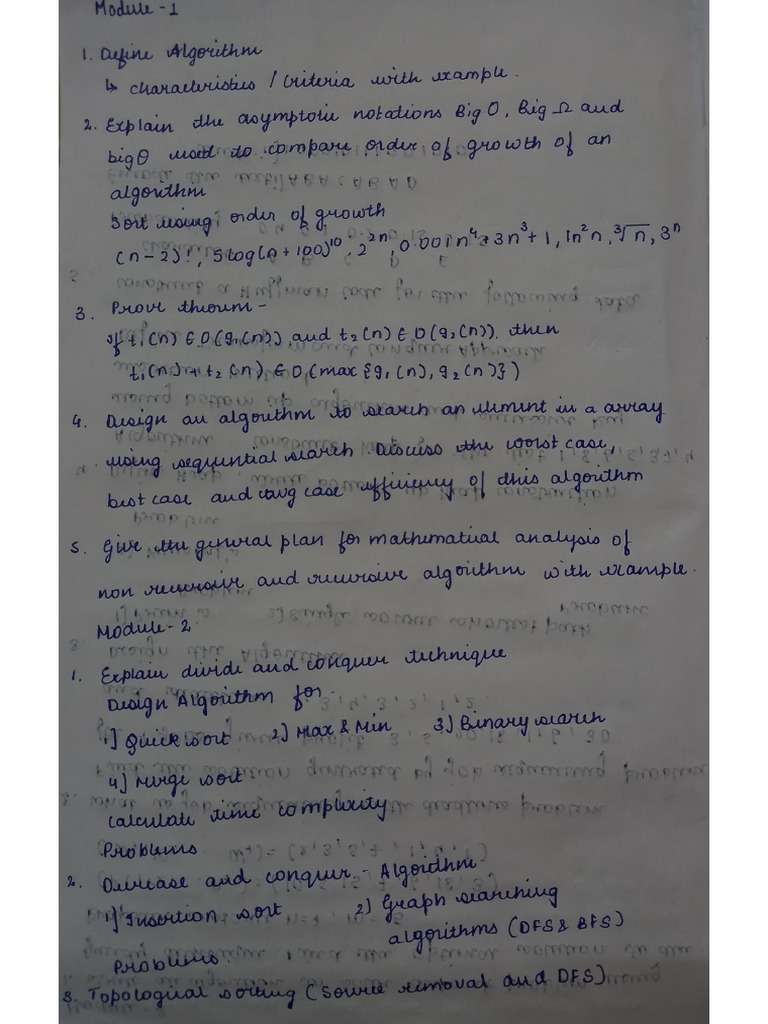 Module - 1
1. Define Algorithm
↳ characteristics / Criteria with example.
2. Explain the asymptotic notations Big O, Big Ω and
big θ used to compare order of growth of an
algorithm
Sort using order of growth
(n-2)!, 5log(n+100)¹⁰, 2²ⁿ, 0.001n⁴+3n³+1, ln²n, ∛n, 3ⁿ
3. Prove theorem -
if t₁(n) ∈ O(g₁(n)) and t₂(n) ∈ O(g₂(n)). then
t₁(n) + t₂(n) ∈ O(max{g₁(n), g₂(n)})
4. Design an algorithm to search an element in a array
using sequential search Discuss the worst case,
best case and avg case efficiency of this algorithm
5. Give the general plan for mathematical analysis of
non recursive and recursive algorithm with example.
Module - 2
1. Explain divide and conquer technique
Design Algorithm for
1] Quick sort 2] Max & Min 3] Binary search
4] Merge sort
calculate time complexity
Problems
2. Decrease and conquer - Algorithm
1] Insertion sort 2] Graph searching
algorithms (DFS & BFS)
Problems.
3. Topological sorting (Source removal and DFS)